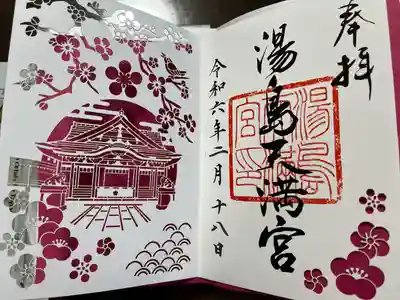 奉拝
湯島天満宮
令和六年二月十八日